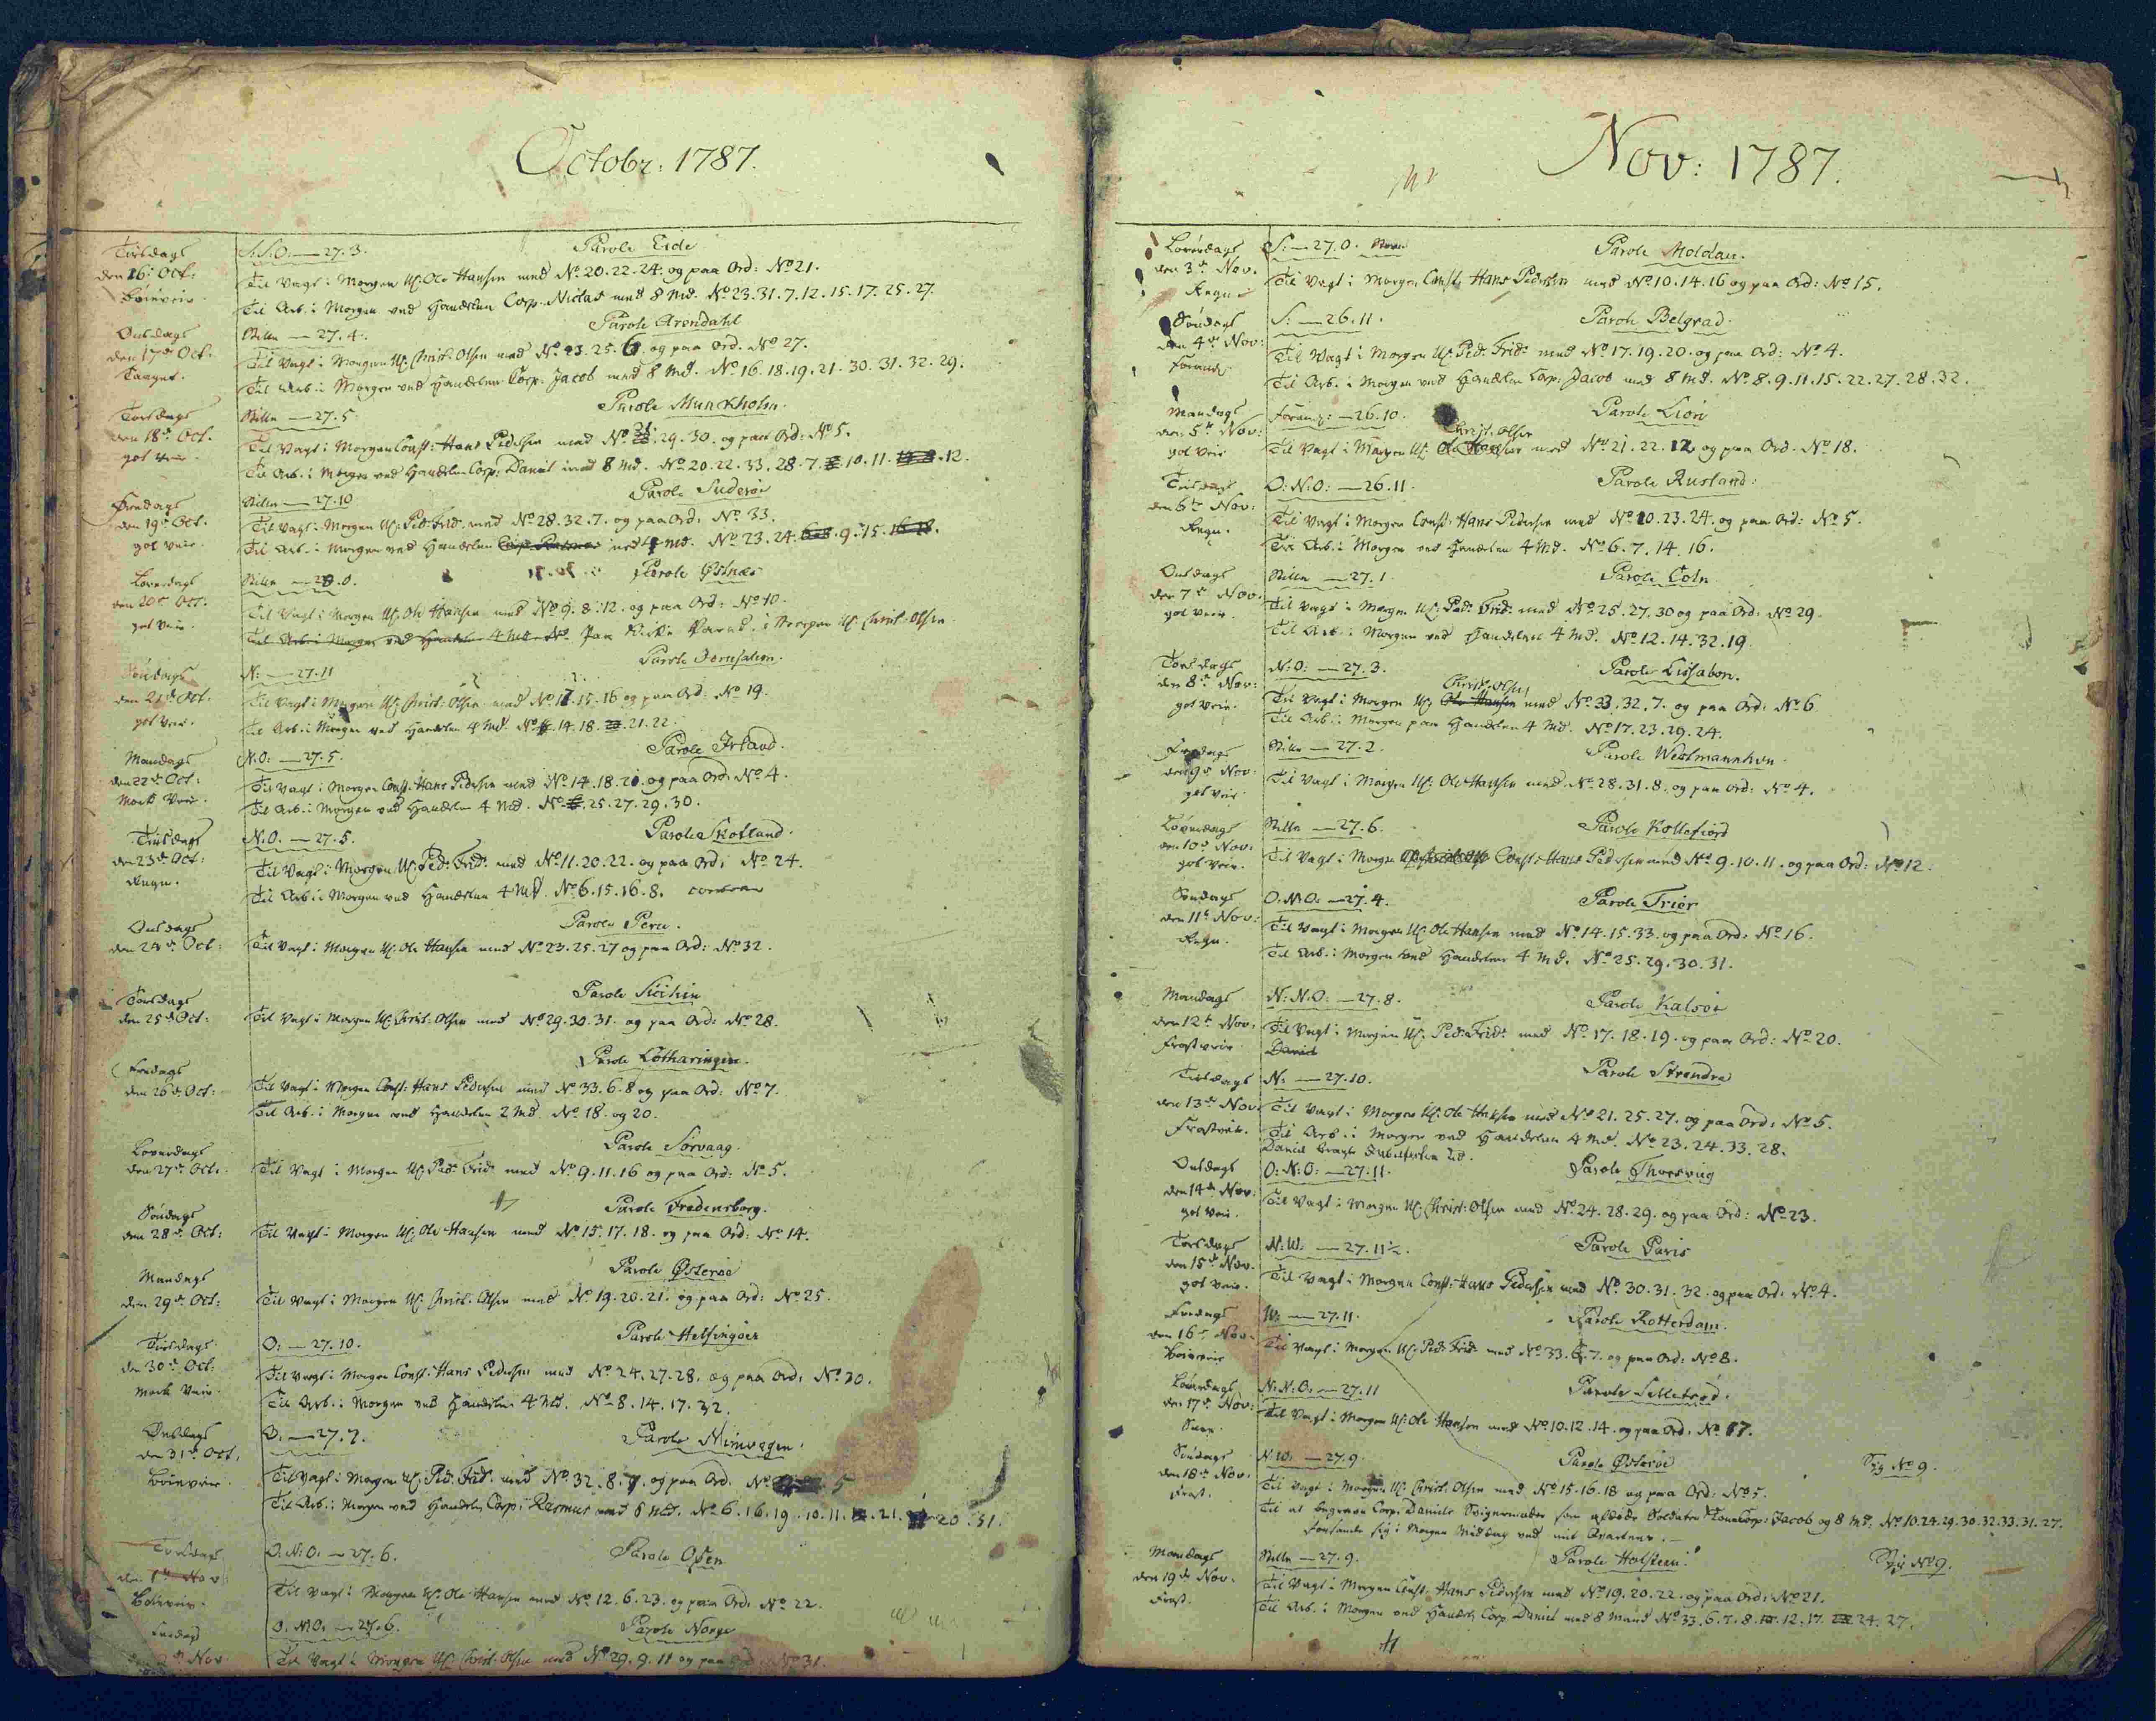 Octobr: 1787.
Tirsdags
den 16: Oct:
S.S.O: — 27.3.
Parole Eide
Til Vagt i Morgen Uf. Ole Hansen med No 20.22.24. og paa Ord: No 21.
Til Arb. i Morgen ved Handelen Corp. Niclas med 8 Md. No 23.31.7.12.15.17.25.27.
Onsdags
den 17de Oct.
Taaget.
Stille — 27.4.
Parole Arendahl
Til Vagt i Morgen Uf. Christ. Olsen med No 23.25.6. og paa Ord. No 27.
Til Arb. i Morgen ved Handelen Corp. Jacob med 8 Md. No 16.18.19.21.30.31.32.29.
Torsdags
den 18de Oct.
got Veir.
Stille — 27.5.
Parole Munkholm.
Til Vagt i Morgen Const: Hans Pedersen med No 21.29.30. og paa Ord: No 5.
Til Arb. i Morgen ved Handelen Corp: Daniel med 8 Md. No 20.22.33.28.7.10.11.12.
Fredags
den 19de Oct.
got Veir.
Stille — 27.10
Parole Suderøe
Til Vagt i Morgen Uf. Ped. Frid. med No 28.32.7. og paa Ord: No 33.
Til Arb. i Morgen ved Handelen med 4 Md. No 23.24. 9.15.
Løverdags
den 20de Oct.
got Veir.
Stille — 28.0.
Parole Østnæs
Til Vagt i Morgen Uf. Ole Hansen med No 9.8.12. og paa Ord: No 10.
Til Arb. i Morgen ved Handelen 4 Md. No Paa Kirke Parade i Morgen Uf. Christ. Olsen.
Søndags
den 21de Oct:
got Veir.
N: — 27.11
Parole Jerusalem.
Til Vagt i Morgen Uf. Christ: Olsen med No 17.15.16 og paa Ord: No 19.
Til Arb. i Morgen ved Handelen 4 Md. No 14.18.21.22.
Mandags
den 22de Oct:
Mork Veir.
N.O: — 27.5.
Parole Irland.
Til Vagt i Morgen Const. Hans Pedersen med No 14.18.20. og paa Ord: No 4.
Til Arb. i Morgen ved Handelen 4 Md. No 25.27.29.30.
Tirsdags
den 23de Oct:
Regn.
N.O. — 27.5.
Parole Skotland.
Til Vagt i Morgen Uf: Ped: Frid: med No 11.20.22. og paa Ord: No 24.
Til Arb. i Morgen ved Handelen 4 Md. No 6.15.16.8.
Onsdags
den 24de Oct:
Parole Peru.
Til Vagt i Morgen Uf. Ole Hansen med No 23.25.27 og paa Ord: No 32.
Torsdags
den 25de Oct:
Parole Sicilien
Til Vagt i Morgen Uf. Christ. Olsen med No 29.30.31. og paa Ord: No 28.
Fredags
den 26de Oct:
Parole Lotharingen.
Til Vagt i Morgen Const: Hans Pedersen med No 33.6.8 og paa Ord: No 7.
Til Arb. i Morgen ved Handelen 2 Md. No 18 og 20.
Løverdags
den 27de Oct:
Parole Sørvaag.
Til Vagt i Morgen Uf. Ped: Frid: med No 9.11.16 og paa Ord: No 5.
Søndags
den 28de Oct:
Parole Fredensborg.
Til Vagt i Morgen Uf. Ole Hansen med No 15.17.18. og paa Ord: No 14.
Mandags
den 29de Oct:
Parole Østerøe
Til Vagt i Morgen Uf. Christ. Olsen med No 19.20.21. og paa Ord: No 25.
Tirsdags
den 30de Oct:
Mork Veir.
O: — 27.10.
Parole Helsingøer
Til Vagt i Morgen Const: Hans Pedersen med No 24.27.28. og paa Ord: No 30.
Til Arb. i Morgen ved Handelen 4 Md. No 8.14.17.32.
Onsdags
den 31te Oct.
O. — 27.7.
Parole Nimvegen.
Til Vagt i Morgen Uf. Ped. Frid. med No 32.8.7. og paa Ord. No 5
Til Arb. i Morgen ved Handelen Corp: Rasmus med 8 Md. No 6.16.19.10.11.21.20.31.
Torsdags
den 1te Nov
O.N:O. — 27.6.
Parole Osen
Til Vagt i Morgen Uf. Ole Hansen med No 12.6.23. og paa Ord: No 22.
Fredags
Nov
O.N.O. — 27.6.
Parole Norge
Til Vagt i Morgen Uf. Christ. Olsen med No 29.9.11 og paa Ord No 31.
Nov: 1787.
Løverdags
den 3de Nov.
Regn
S: — 27.0.
Parole Moldau.
Til Vagt i Morgen Const. Hans Pedersen med No 10.14.16 og paa Ord: No 15.
Søndags
den 4de Nov:
S: — 26.11.
Parole Belgrad.
Til Vagt i Morgen Uf. Ped: Frid: med No 17.19.20. og paa Ord: No 4.
Til Arb. i Morgen ved Handelen Corp. Jacob med 8 Md. No 8.9.11.15.22.27.28.32.
Mandags
den 5te Nov:
got Veir
— 26.10.
Parole Lion
Christ: Olsen
Til Vagt i Morgen Uf. Ole Hansen med No 21.22.12 og paa Ord. No 18.
Tirsdags
den 6te Nov:
Regn.
O:N:O: — 26.11.
Parole Rusland.
Til Vagt i Morgen Const: Hans Pedersen med No 10.23.24. og paa Ord: No 5.
Til Arb. i Morgen ved Handelen 4 Md. No 6.7.14.16.
Onsdags
den 7de Nov.
got Veir.
Stille — 27.1.
Parole Cöln
Til Vagt i Morgen Uf: Ped: Frid: med No 25.27.30 og paa Ord: No 29.
Til Arb. i Morgen ved Handelen 4 Md. No 12.14.32.19.
Torsdags
den 8de Nov:
got Veir.
N:O: — 27.3.
Parole Lissabon.
Christ: Olsen
Til Vagt i Morgen Uf. Ole Hansen med No 33.32.7. og paa Ord: No 6.
Til Arb. i Morgen paa Handelen 4 Md. No 17.23.29.24.
Fredags
den 9de Nov:
got Veir
Stille — 27.2.
Parole Westmannhvn
Til Vagt i Morgen Uf: Ole Hansen med No 28.31.8. og paa Ord: No 4.
Løverdags
den 10de Nov:
got Veir.
Stille — 27.6.
Parole Kollefiord
Til Vagt i Morgen Const: Hans Pedersen med No 9.10.11. og paa Ord: No 12.
Søndags
den 11te Nov:
Regn.
O.N.O. — 27.4.
Parole Trier
Til Vagt i Morgen Uf. Ole Hansen med No 14.15.33. og paa Ord: No 16.
Til Arb. i Morgen ved Handelen 4 Md. No 25.29.30.31.
Mandags
den 12te Nov:
Frostveir.
N:N.O: — 27.8.
Parole Kalsøe
Til Vagt i Morgen Uf. Ped: Frid: med No 17.18.19. og paa Ord: No 20.
Daniel
Tirsdags
den 13de Nov.
Frostveir.
N: — 27.10.
Parole Strendre
Til Vagt i Morgen Uf: Ole Hansen med No 21.25.27. og paa Ord: No 5.
Til Arb. i Morgen ved Handelen 4 Md. No 23.24.33.28.
Onsdags
den 14de Nov:
got Veir.
O:N:O: — 27.11.
Parole Thorsvig
Til Vagt i Morgen Uf. Christ: Olsen med No 24.28.29. og paa Ord: No 23.
Torsdags
den 15de Nov.
got Veir.
N:W: — 27.11½.
Parole Paris
Til Vagt i Morgen Const: Hans Pedersen med No 30.31.32. og paa Ord: No 4.
Fredags
den 16de Nov.
W: — 27.11.
Parole Rotterdam.
Til Vagt i Morgen Uf. Ped: Frid: med No 33.6.7. og paa Ord: No 8.
Løverdags
den 17de Nov:
Snee.
N.N:O. — 27.11
Parole Selletrød.
Til Vagt i Morgen Uf: Ole Hansen med No 10.12.14. og paa Ord: No 17.
Søndags
den 18de Nov.
Frost.
N:W. — 27.9.
Parole Østerøe
No 9.
Til Vagt i Morgen Uf. Christ. Olsen med No 15.16.18 og paa Ord: No 5.
Til at begrave Corp. Daniels Svigermoder Soldater Corp: Jacob og 8 Md. No 10.24.29.30.32.33.31.27.
forsamle sig i Morgen Middag ved mit Qvarteer.
Mandags
den 19de Nov.
Frost.
Stille — 27.9.
Parole Holsteen.
No 9.
Til Vagt i Morgen Const: Hans Pedersen med No 19.20.22. og paa Ord: No 21.
Til Arb. i Morgen ved Handel: Corp. Daniel med 8 Mand No 33.6.7.8.12.17.24.27.